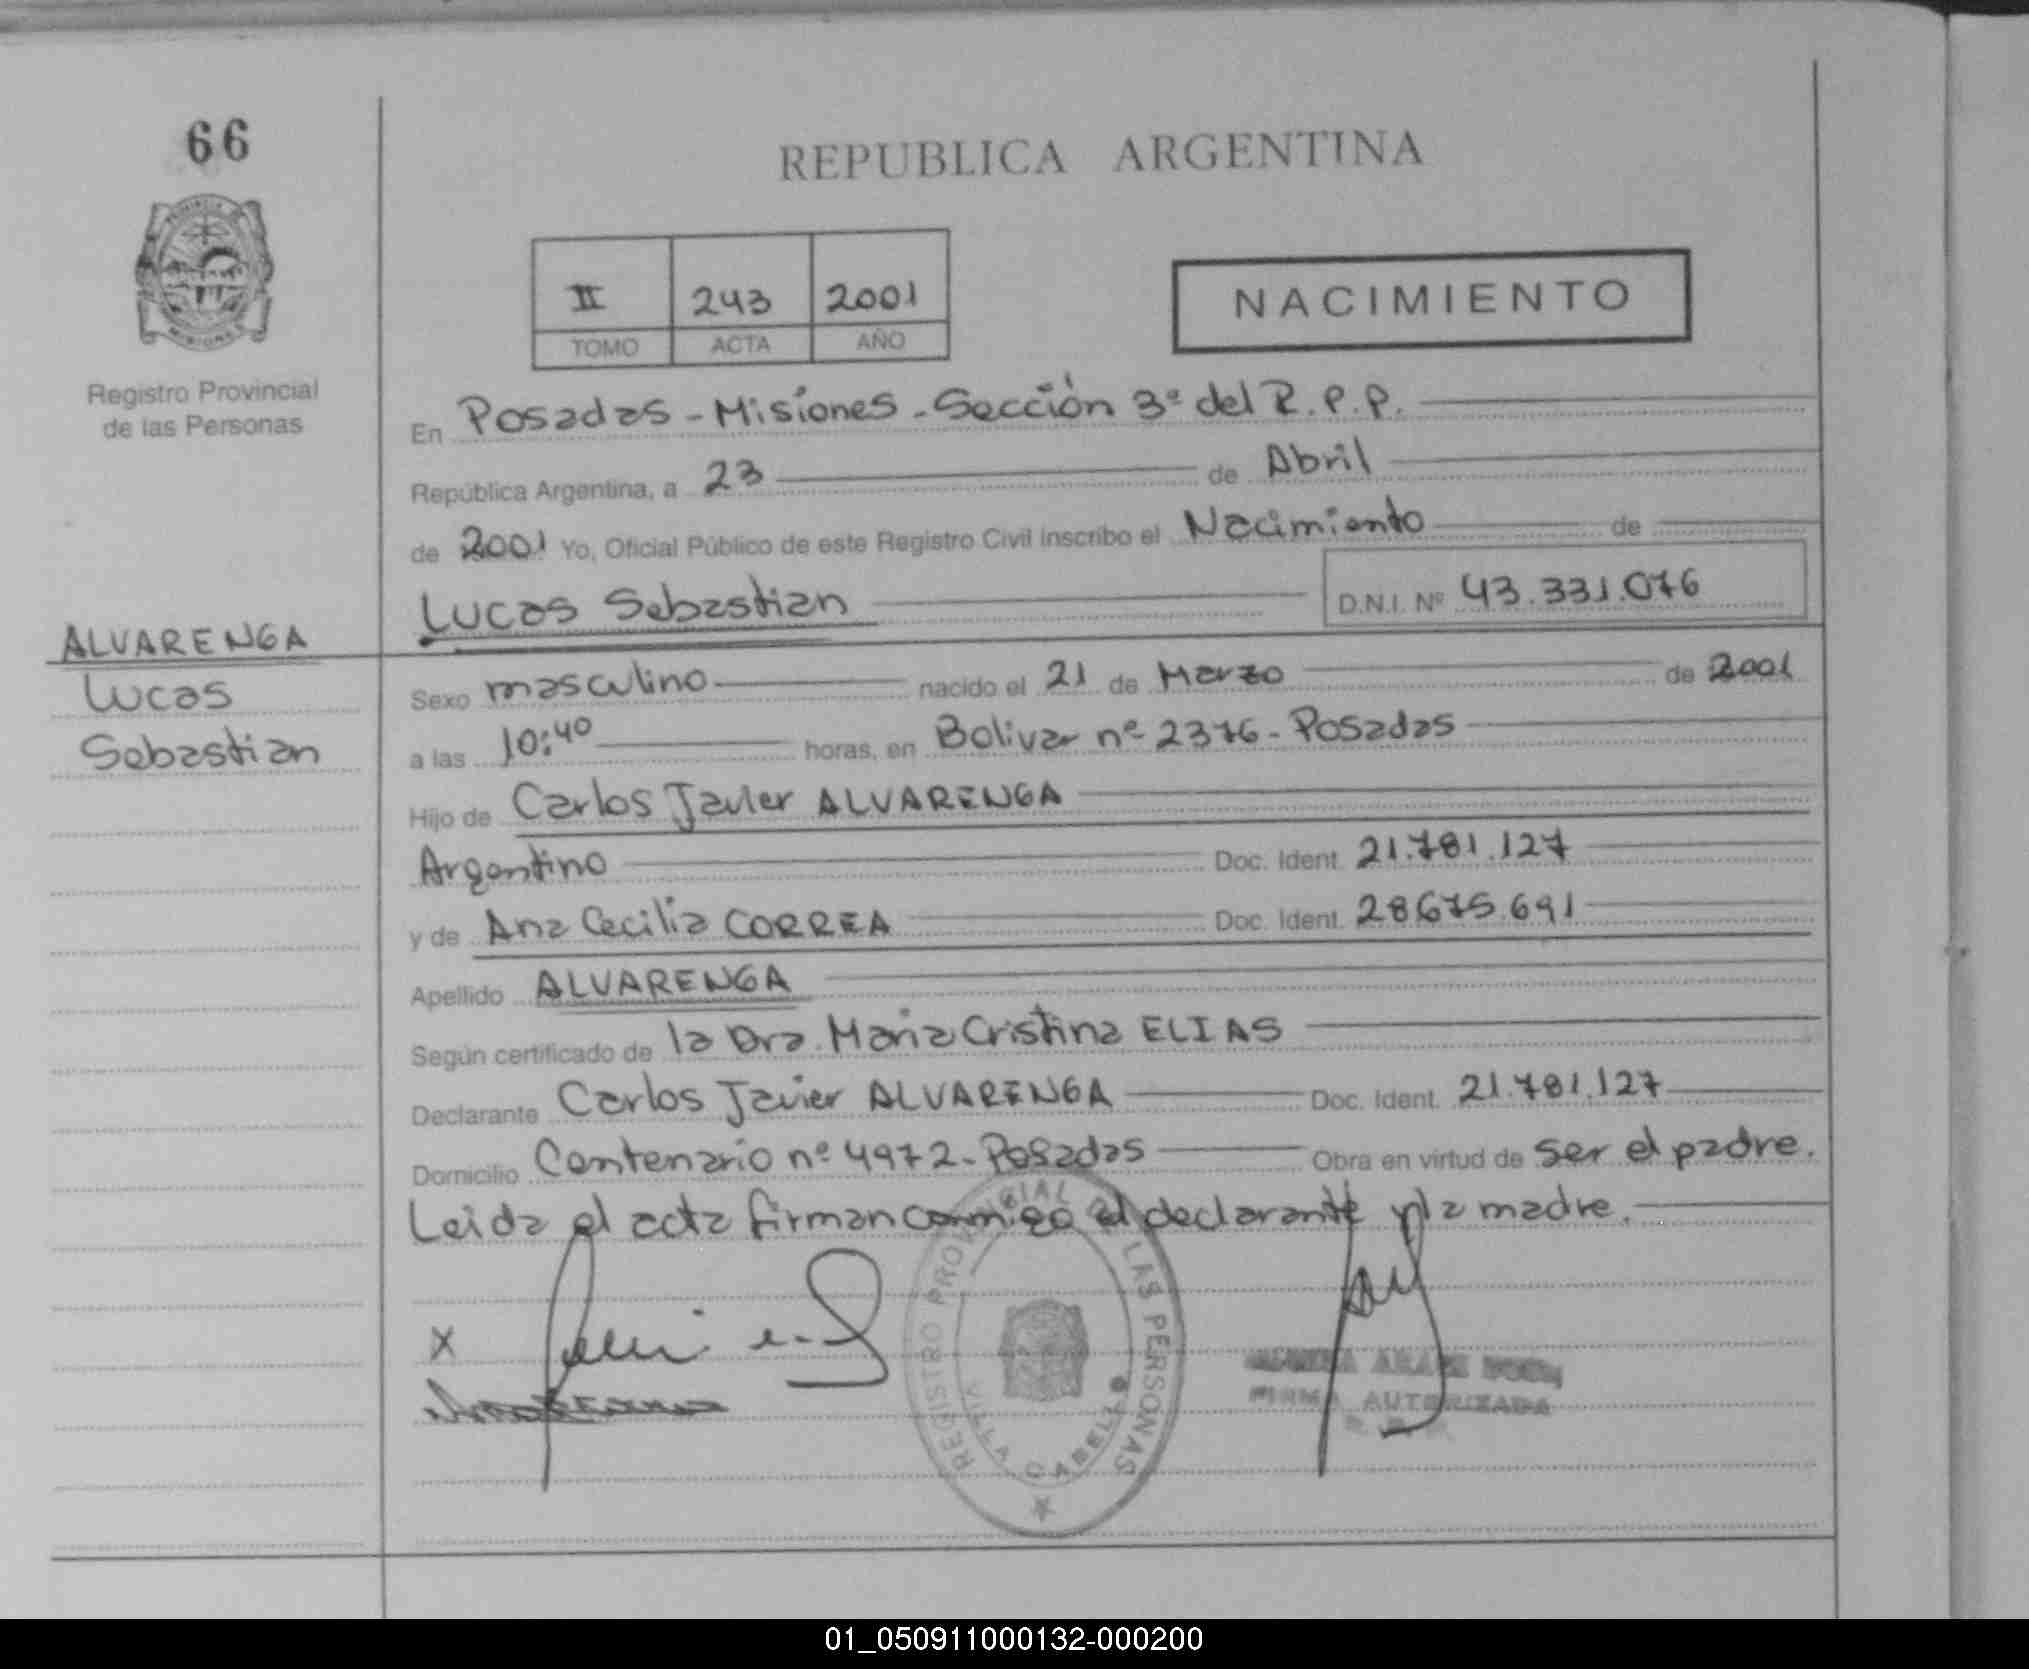 66
REPUBLICA ARGENTINA
II 243 2001
TOMO ACTA AÑO
NACIMIENTO
Registro Provincial
de las Personas
En Posadas - Misiones - Sección 3ª del R.P.P.
República Argentina, a 23 de Abril
de 2001 Yo, Oficial Público de este Registro Civil inscribo el Nacimiento de
Lucas Sebastian D.N.I. Nº 43.331.076
ALVARENGA
Lucas
Sebastian
Sexo masculino nacido el 21 de Marzo de 2001
a las 10:40 horas, en Bolivar nº 2376 - Posadas
Hijo de Carlos Javier ALVARENGA
Argentino Doc. Ident. 21.781.127
y de Ana Cecilia CORREA Doc. Ident. 28.675.691
Apellido ALVARENGA
Según certificado de la Dra. Maria Cristina ELIAS
Declarante Carlos Javier ALVARENGA Doc. Ident. 21.781.127
Domicilio Centenario nº 4972 - Posadas Obra en virtud de ser el padre.
Leida el acta firman conmigo el declarante y la madre.
X
REGISTRO PROVINCIAL DE LAS PERSONAS
VILLA CABELLO
FIRMA AUTORIZADA
01_050911000132-000200